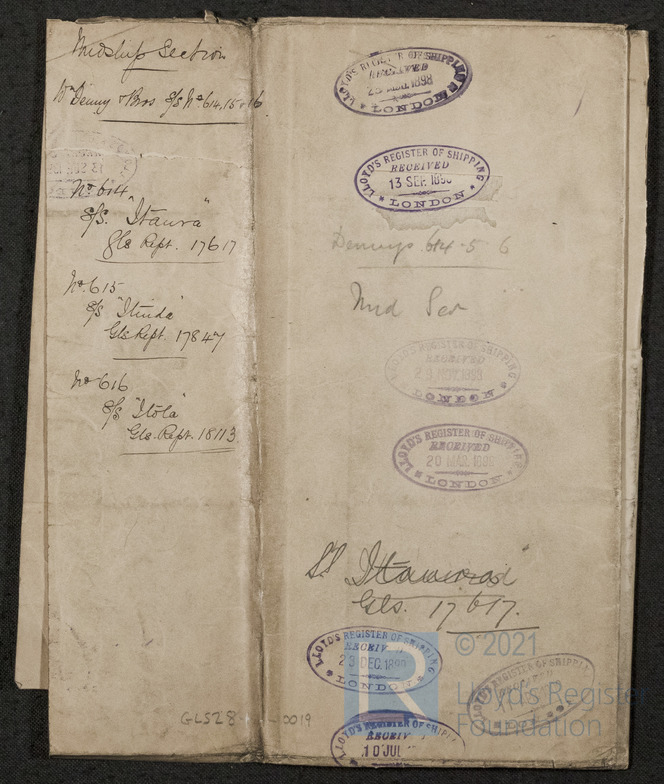 Midship Section
Wm Denny & Bros S/S Nos 614, 15 & 16
No 614
S/S. "Itaura"
Gls Rept. 17617
No. 615
S/S "Itinda"
Gls Rept. 17847
No 616
S/S "Itola"
Gls. Rept. 18113
LLOYD'S REGISTER OF SHIPPING
RECEIVED
1898
LONDON
LLOYD'S REGISTER OF SHIPPING
RECEIVED
13 SEP. 189
LONDON
Dennys 614-5 6
Mid Sec
LLOYD'S REGISTER OF SHIPPING
RECEIVED
NOV. 1898
LONDON
LLOYD'S REGISTER OF SHIPPING
RECEIVED
20 MAR. 189
LONDON
SS
Gls. 17617.
LLOYD'S REGISTER OF SHIPPING
RECEIV
23 DEC. 1899
LONDON
© 2021
Lloyd's Register
Foundation
LLOYD'S REGISTER OF SHIPPING
RECEIV
10 JUL
0019